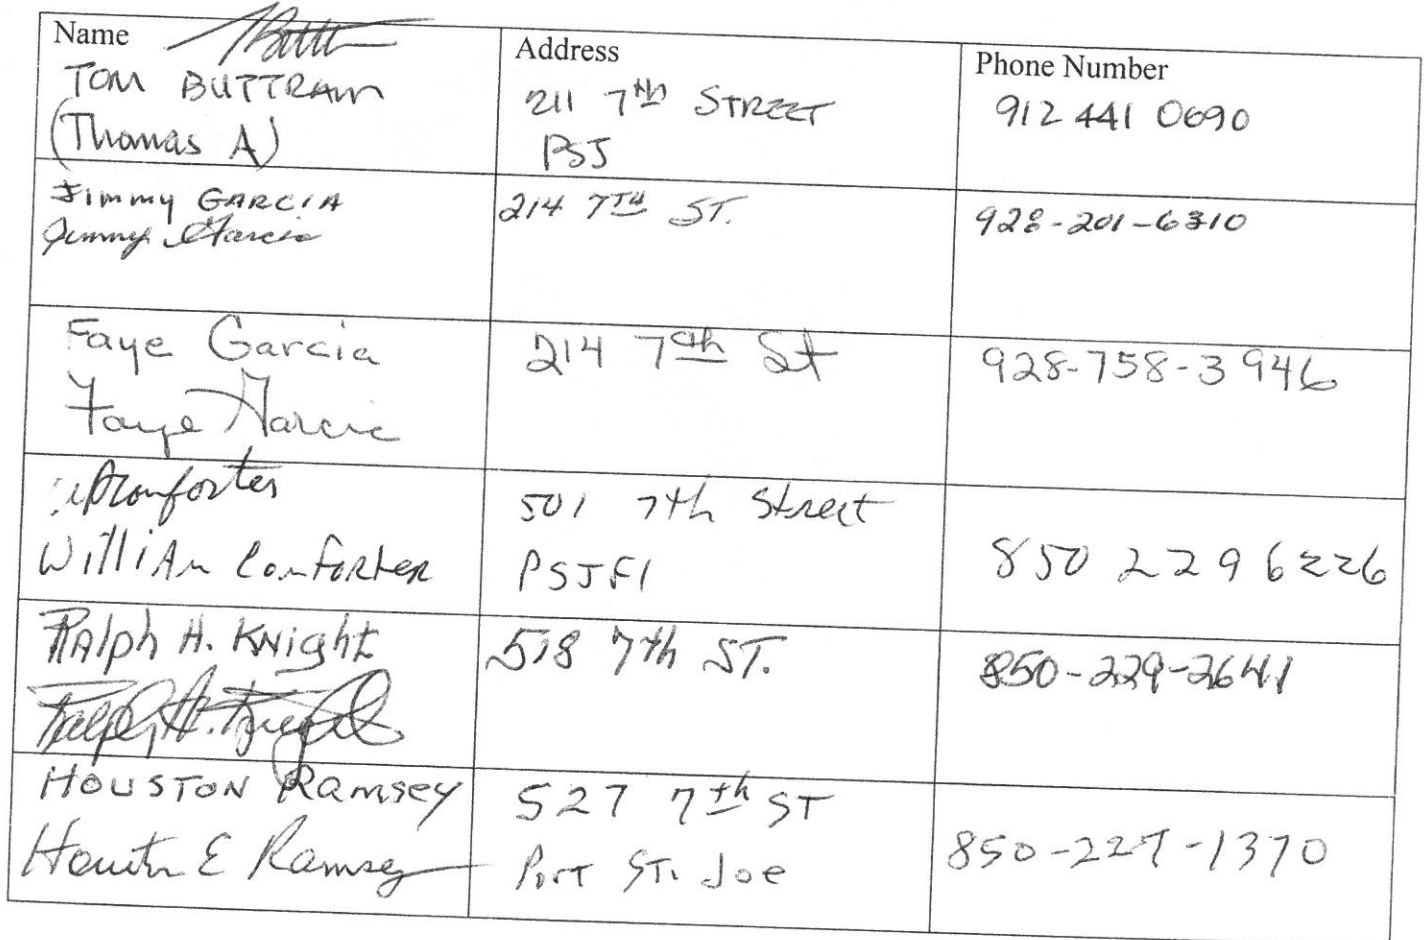 Name
TOM BUTTRAM
(Thomas A)
Address
211 7th STREET
PSJ
Phone Number
912 441 0690
Jimmy GARCIA
Jimmy Garcia
214 7TH ST.
928-201-6310
Faye Garcia
Faye Garcia
214 7th St
928-758-3946
Comforter
William Comforter
501 7th Street
PSJ Fl
850 229 6226
Ralph H. Knight
Ralph H. Knight
518 7th ST.
850-229-2641
HOUSTON Ramsey
Houston E Ramsey
527 7th ST
Port ST. Joe
850-227-1370